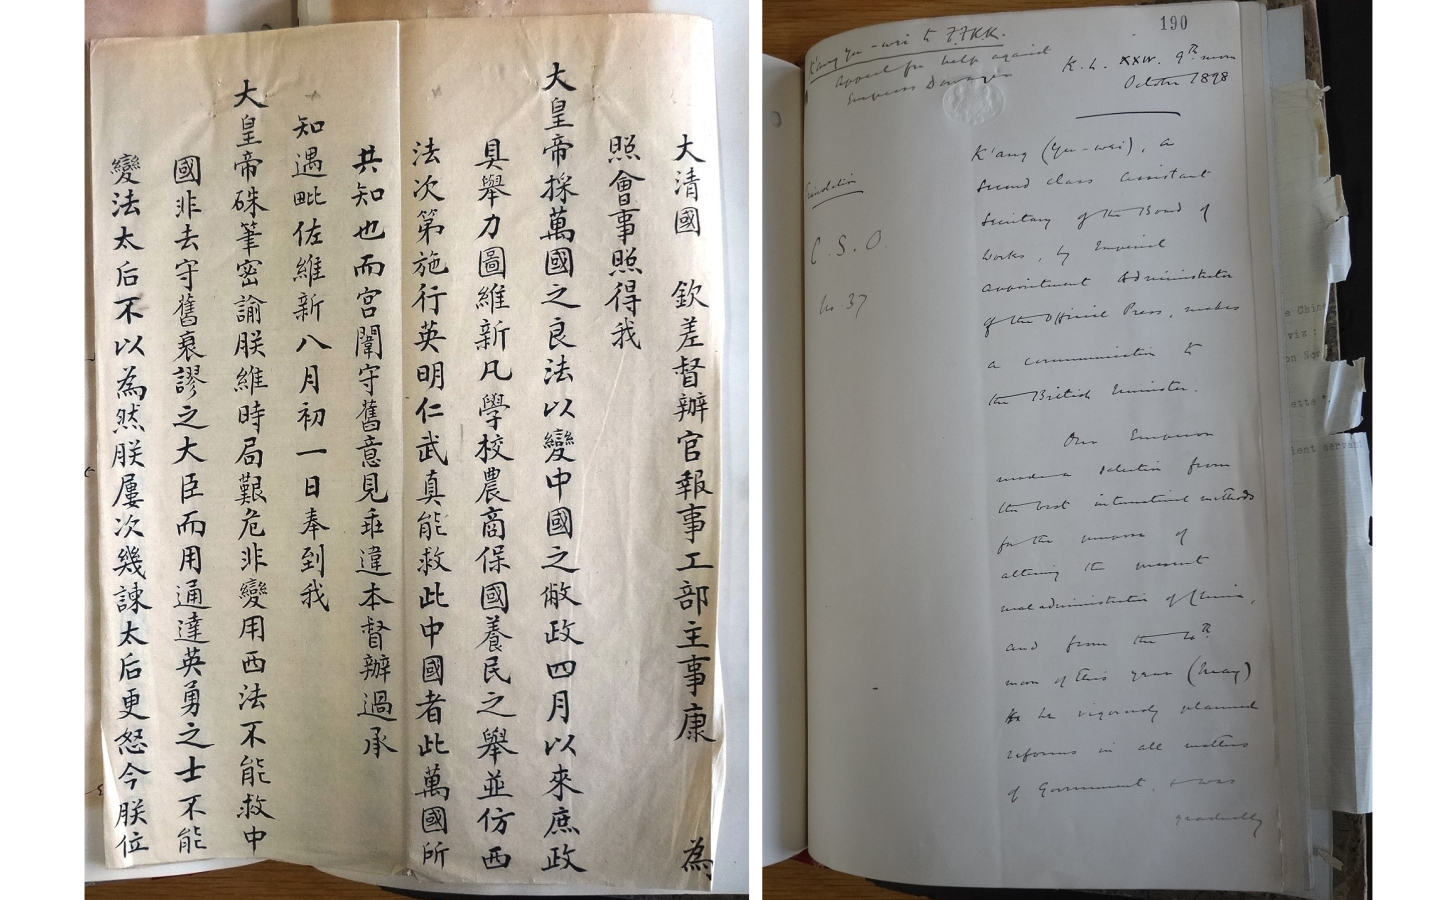 大清國 欽差督辦官報事工部主事康 為
照會事照得我
大皇帝採萬國之良法以變中國之敝政四月以來庶政
具舉力圖維新凡學校農商保國養民之舉並仿西
法次第施行英明仁武真能救此中國者此萬國所
共知也而宮闈守舊意見乖違本督辦過承
知遇毗佐維新八月初一日奉到我
大皇帝硃筆密諭朕維時局艱危非變用西法不能救中
國非去守舊衰謬之大臣而用通達英勇之士不能
變法太后不以為然朕屢次幾諫太后更怒今朕位
190
K'ang Yu-wei to
Appeal for help against
Empress Dowager
K. H. XXIV. 9th moon
October 1898
C. S. O.
No 37
K'ang (Yu-wei), a
second class assistant
Secretary of the Board of
Works, by Imperial
appointment Administrator
of the Official Press, makes
a communication to
the British Minister.
Our Emperor
made a selection from
the best international methods
for the purpose of
altering the present
maladministration of China,
and from the 4th
moon of this year (May)
he vigorously planned
reforms in all matters
of Government, & was
gradually